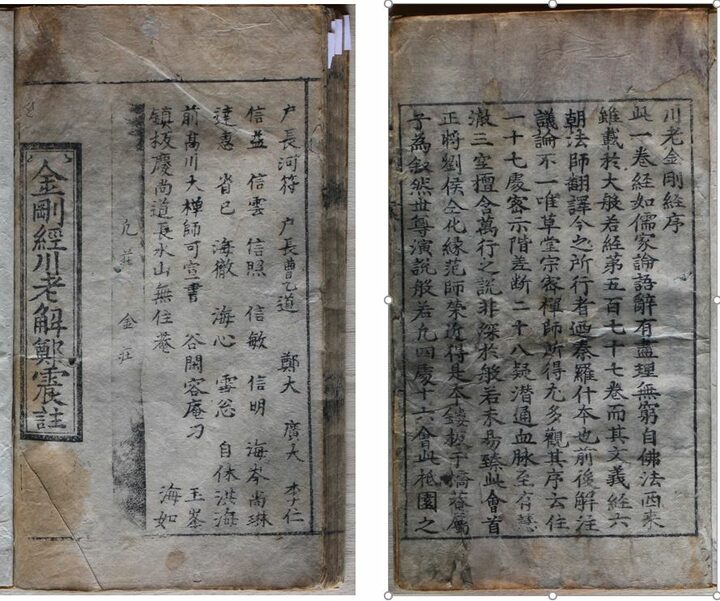 川老金剛經序
此一卷經如儒家論語辭有盡理無窮自佛法西来
雖載於大般若經第五百七十七卷而其文義經六
朝法師翻譯今之所行者迺秦羅什本也前後解注
議論不一唯草堂宗密禪師所得尤多觀其序云住
一十七處密示階差断二十八疑潜通血脉至有慧
澈三空檀含萬行之説非深於般若未易臻此會首
正將劉侯仝化縁范師榮近得是本鏤板于蕃屬
予為叙然世尊演説般若凡四處十六會此祇園之
户長河符 户長曹乙道 鄭大 廣大 李仁
信益 信雲 信照 信敏 信明 海岑 尚琳
達惠 省已 海徹 海心 雲忩 自休 洪海
前高川大禅師可宣書 谷閑容庵刀 玉峯
鎮板慶尚道長水山無住菴 海如
九莊 金莊
金剛經川老解鄭震註